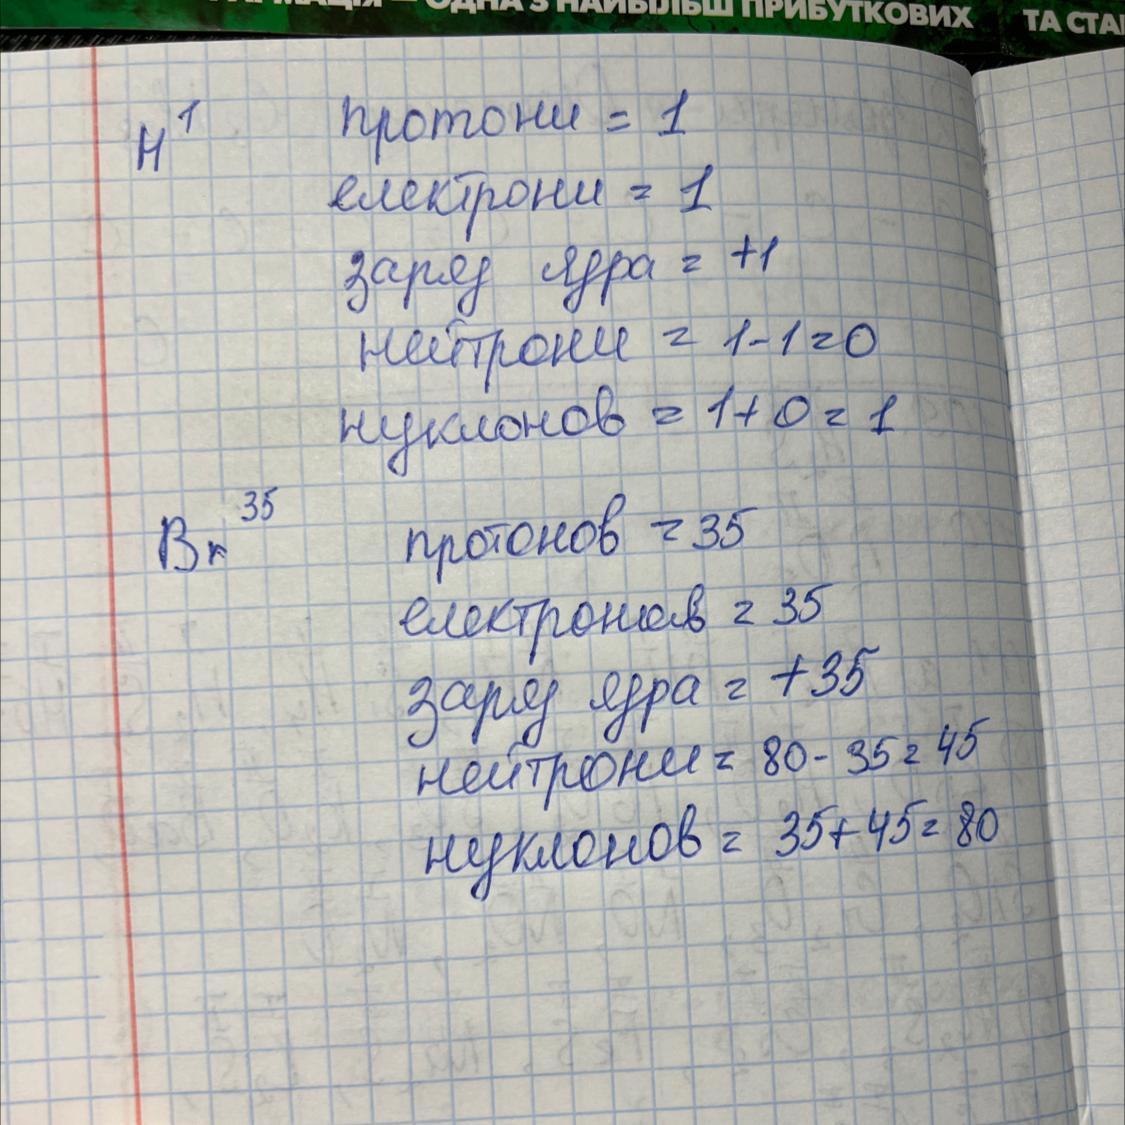 — ОДНА З НАЙБІЛЬШ ПРИБУТКОВИХ ТА
H¹ протони = 1
електрони = 1
заряд ядра = +1
нейтрони = 1-1=0
нуклонов = 1+0=1
Br³⁵ протонов = 35
електронов = 35
заряд ядра = +35
нейтрони = 80-35=45
нуклонов = 35+45=80